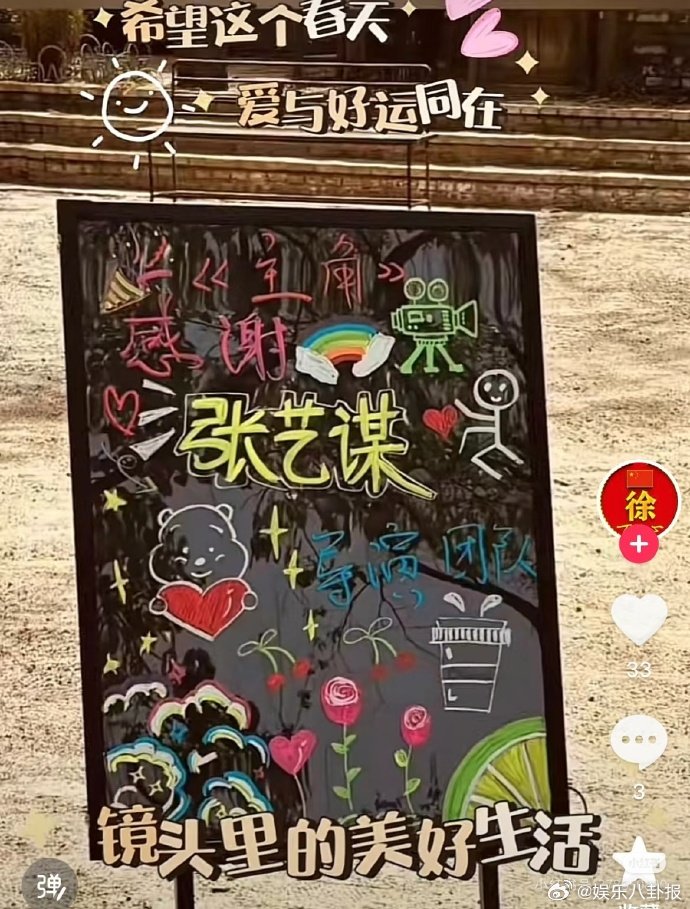 希望这个春天
爱与好运同在
《主角》
感谢
张艺谋
导演团队
镜头里的美好生活
徐
33
3
弹
@娱乐八卦报